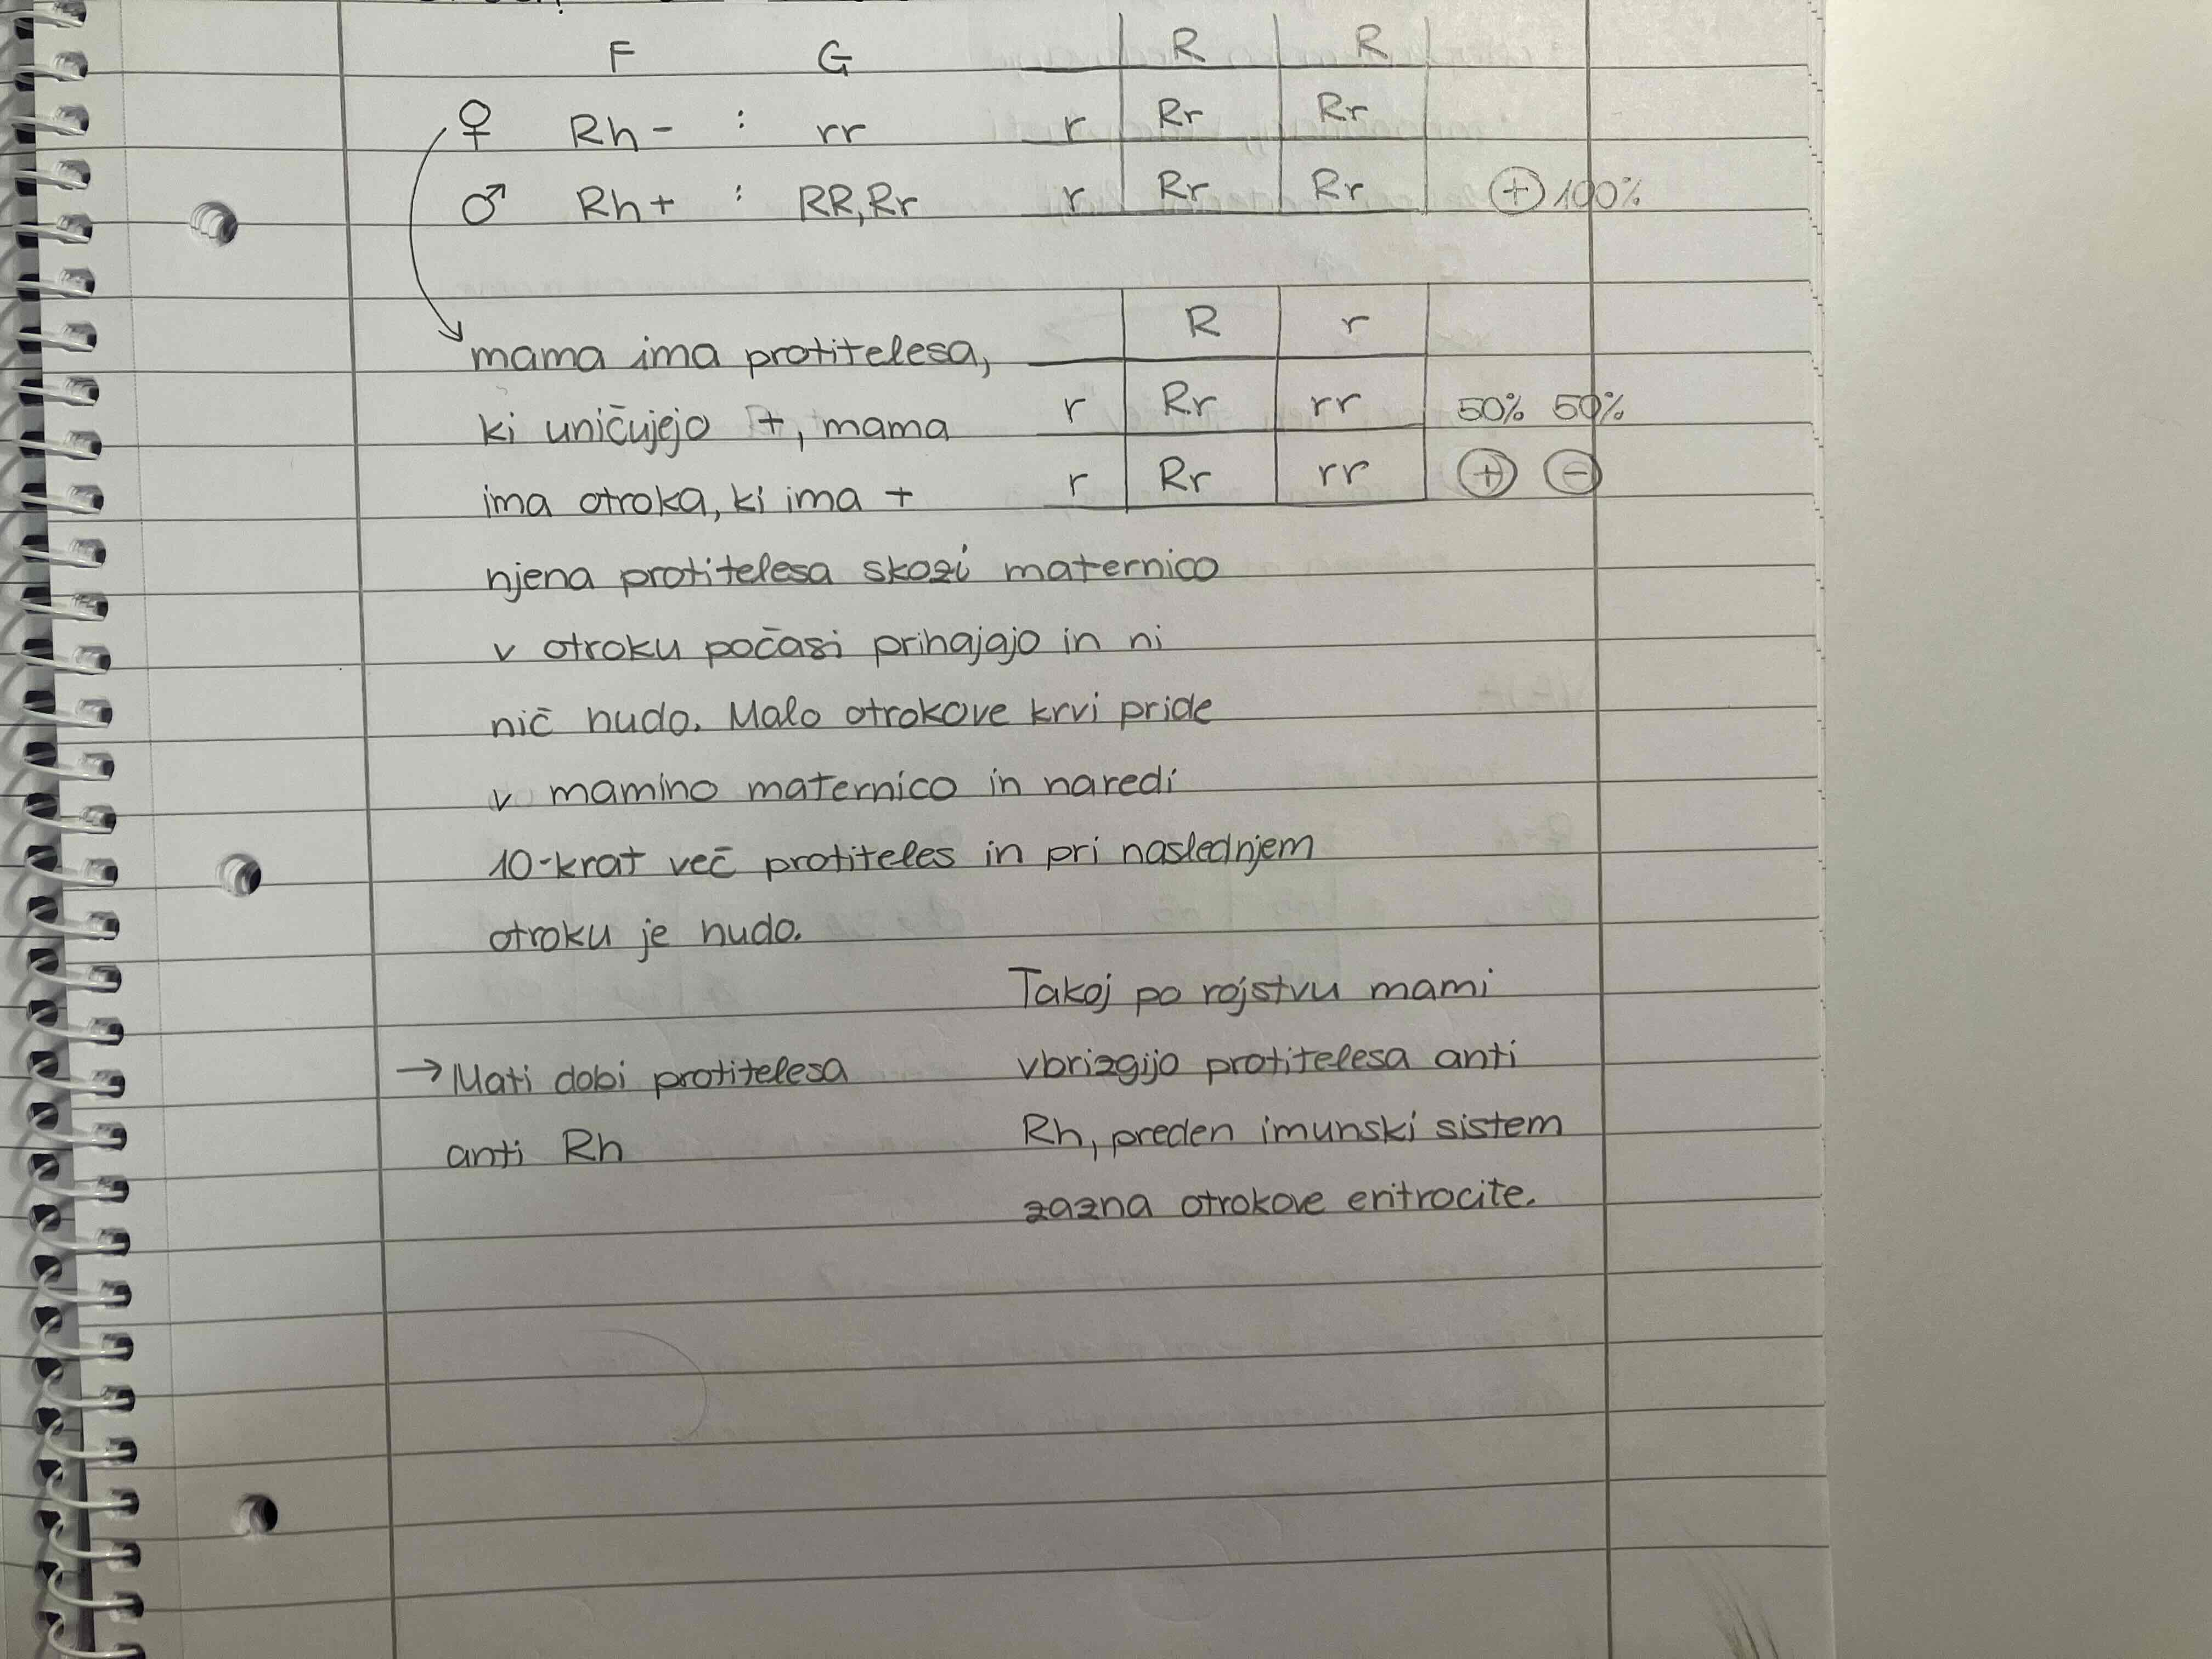 F G R R
♀ Rh- : rr r Rr Rr
♂ Rh+ : RR, Rr r Rr Rr ⊕ 100%
R r
mama ima protitelesa,
ki uničujejo +, mama r Rr rr 50% 50%
ima otroka, ki ima + r Rr rr ⊕ ⊖
njena protitelesa skozi maternico
v otroku počasi prihajajo in ni
nič hudo. Malo otrokove krvi pride
v mamino maternico in naredi
10-krat več protiteles in pri naslednjem
otroku je hudo.
Takoj po rojstvu mami
→ Mati dobi protitelesa vbrizgijo protitelesa anti
anti Rh Rh, preden imunski sistem
zazna otrokove eritrocite.